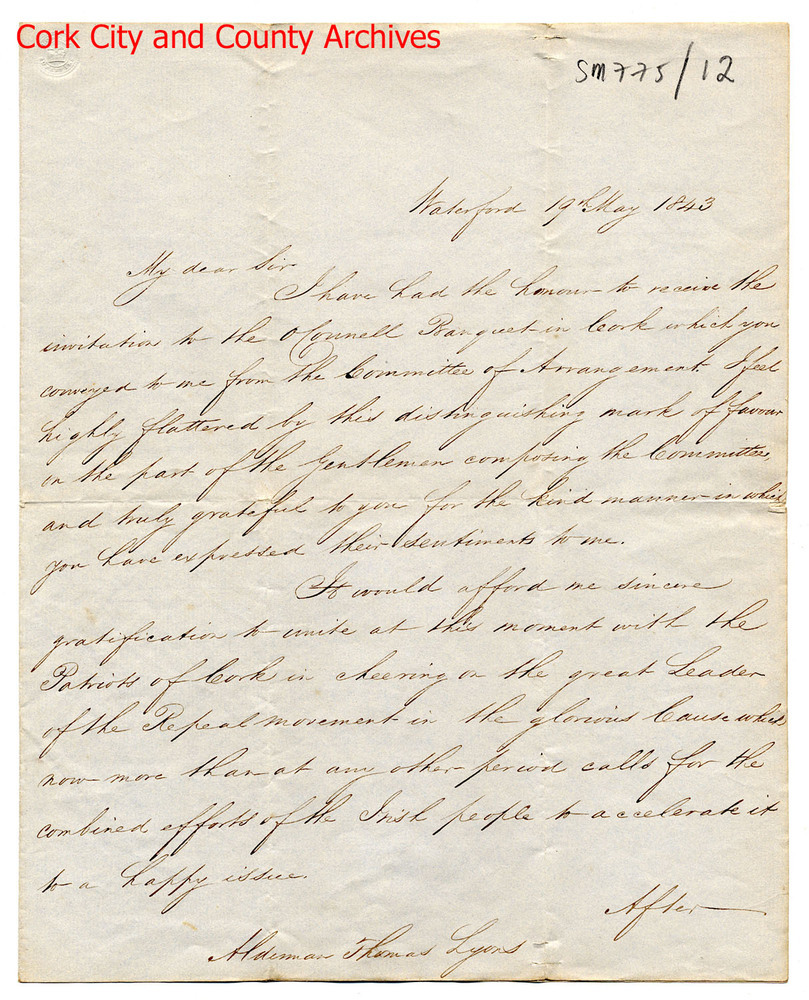 Cork City and County Archives
SM775/12
Waterford 19th May 1843
My dear Sir
I have had the honour to receive the
invitation to the O'Connell Banquet in Cork which you
conveyed to me from the Committee of Arrangement. I feel
highly flattered by this distinguishing mark of favour
on the part of the Gentlemen composing the Committee,
and truly grateful to you for the kind manner in which
you have expressed their sentiments to me.
It would afford me sincere
gratification to unite at this moment with the
Patriots of Cork in cheering on the great Leader
of the Repeal movement in the glorious Cause which
now more than at any other period calls for the
combined efforts of the Irish people to accelerate it
to a happy issue.
After
Alderman Thomas Lyons